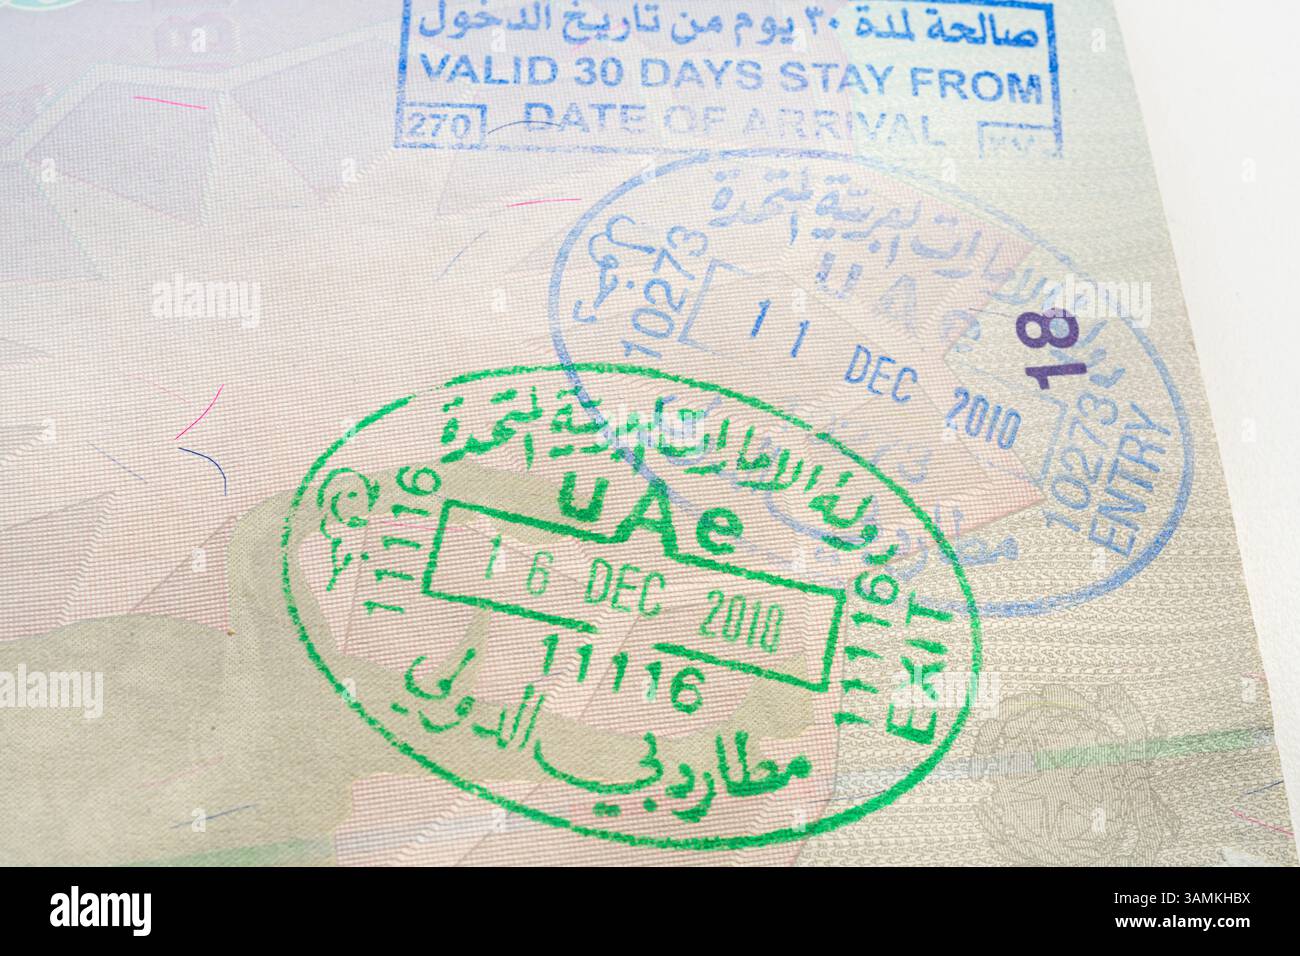 صالحة لمدة ٣٠ يوم من تاريخ الدخول
VALID 30 DAYS STAY FROM
DATE OF ARRIVAL
270
دولة الامارات العربية المتحدة
UAe
10273
11 DEC 2010
18
10273
ENTRY
دولة الامارات العربية المتحدة
UAe
11116
16 DEC 2010
11116
11116
EXIT
مطار دبي الدولي
alamy
alamy
Image ID: 3AMKHBX
www.alamy.com